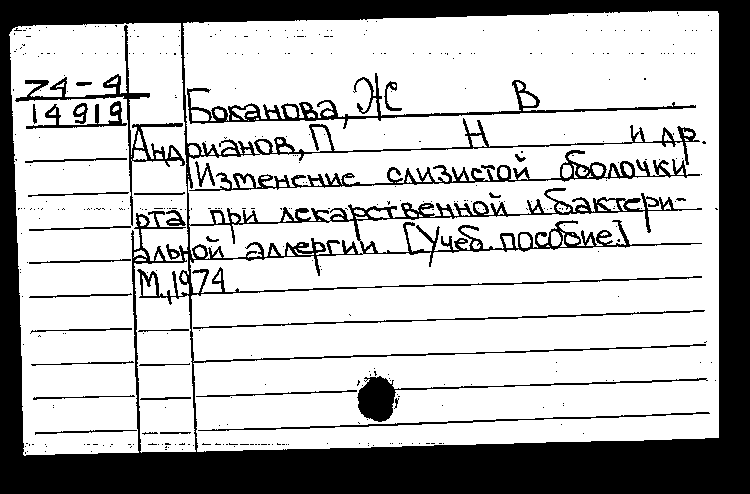 74-4
14919
Боканова, Ж В
Андрианов, П Н и др.
Изменение слизистой оболочки
рта при лекарственной и бактери-
альной аллергии. [Учеб. пособие.]
М., 1974.